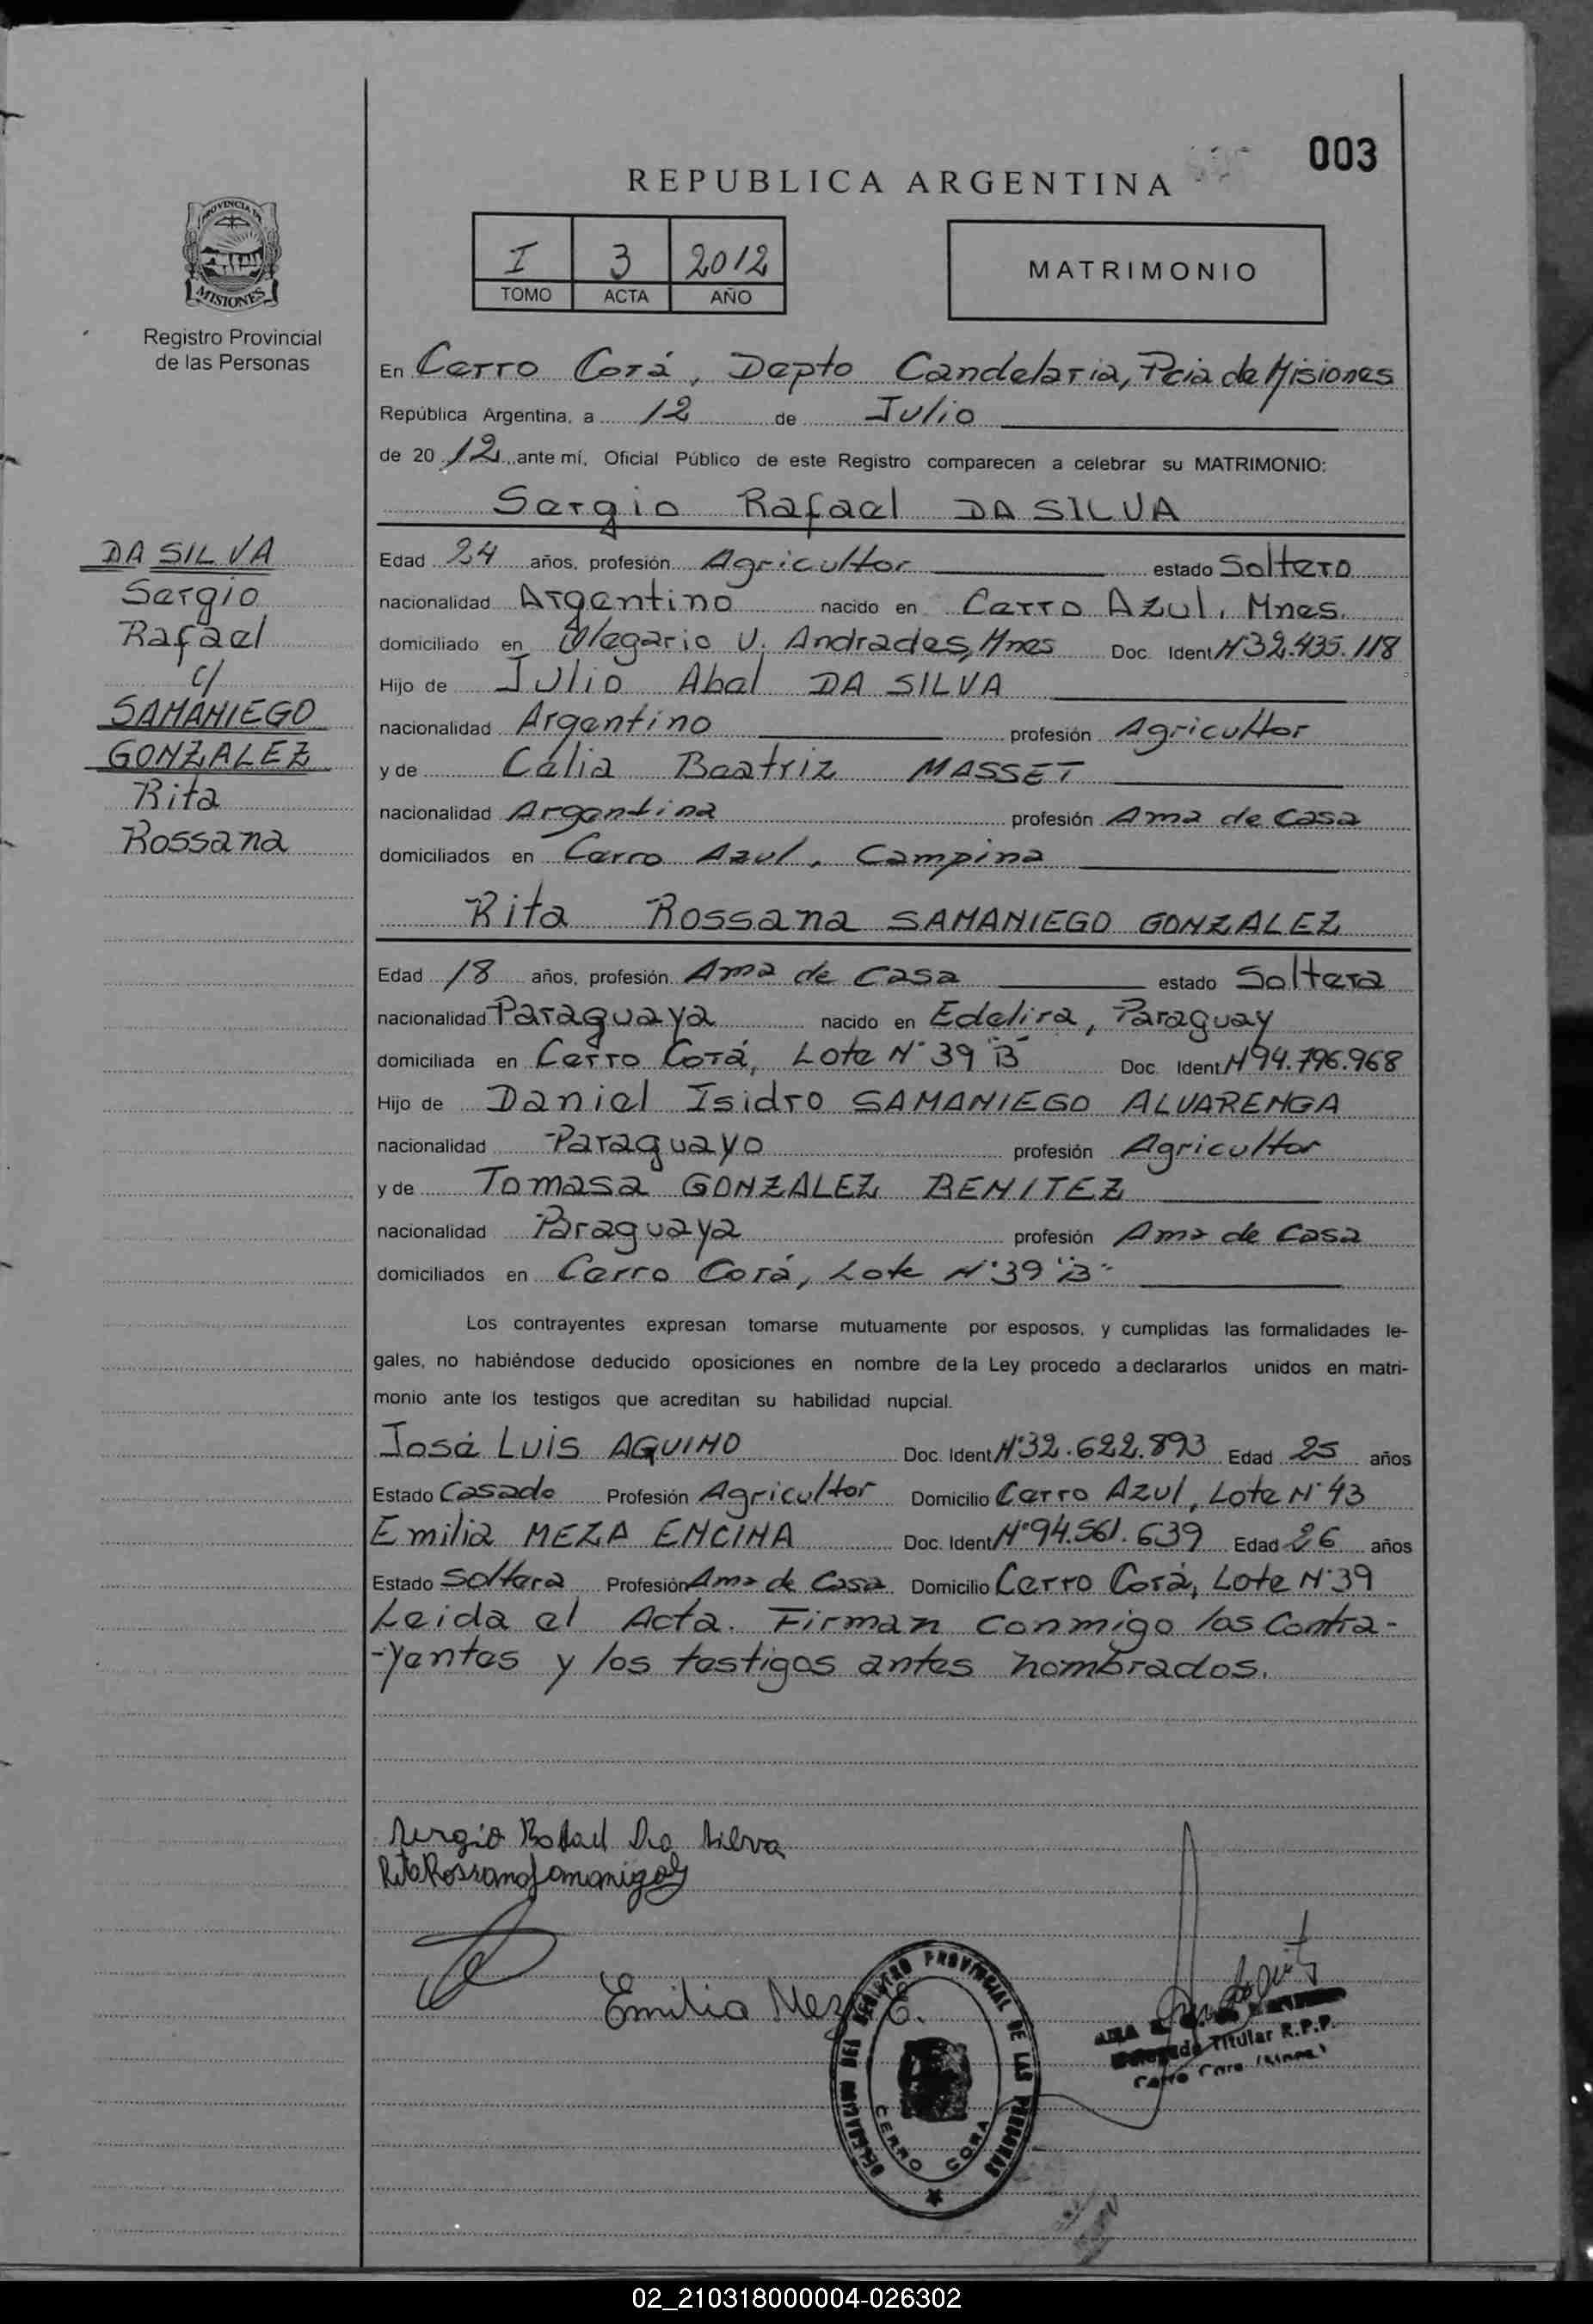 003
REPUBLICA ARGENTINA
PROVINCIA DE
MISIONES
Registro Provincial
de las Personas
I 3 2012
TOMO ACTA AÑO
MATRIMONIO
En Cerro Corá, Depto Candelaria, Pcia de Misiones
República Argentina, a 12 de Julio
de 2012 ante mí, Oficial Público de este Registro comparecen a celebrar su MATRIMONIO:
Sergio Rafael DA SILVA
DA SILVA
Sergio
Rafael
c/
SAMANIEGO
GONZALEZ
Rita
Rossana
Edad 24 años, profesión Agricultor estado Soltero
nacionalidad Argentino nacido en Cerro Azul, Mnes.
domiciliado en Olegario V. Andrades, Mnes Doc. Ident Nº 32.435.118
Hijo de Julio Abel DA SILVA
nacionalidad Argentino profesión Agricultor
y de Celia Beatriz MASSET
nacionalidad Argentina profesión Ama de Casa
domiciliados en Cerro Azul, Campina
Rita Rossana SAMANIEGO GONZALEZ
Edad 18 años, profesión Ama de Casa estado Soltera
nacionalidad Paraguaya nacido en Edelira, Paraguay
domiciliada en Cerro Corá, Lote Nº 39 "B" Doc. Ident Nº 94.796.968
Hijo de Daniel Isidro SAMANIEGO ALVARENGA
nacionalidad Paraguayo profesión Agricultor
y de Tomasa GONZALEZ BENITEZ
nacionalidad Paraguaya profesión Ama de Casa
domiciliados en Cerro Corá, Lote Nº 39 "B"
Los contrayentes expresan tomarse mutuamente por esposos, y cumplidas las formalidades le-
gales, no habiéndose deducido oposiciones en nombre de la Ley procedo a declararlos unidos en matri-
monio ante los testigos que acreditan su habilidad nupcial.
José Luis AQUINO Doc. Ident Nº 32.622.893 Edad 25 años
Estado Casado Profesión Agricultor Domicilio Cerro Azul, Lote Nº 43
Emilia MEZA ENCINA Doc. Ident Nº 94.561.639 Edad 26 años
Estado Soltera Profesión Ama de Casa Domicilio Cerro Corá, Lote Nº 39
Leida el Acta. Firman conmigo los Contra-
-yentes y los testigos antes nombrados.
Sergio Rafael Da Silva
Rita Rossana Samaniego
Emilia Meza E.
DELEGACION DEL REGISTRO PROVINCIAL DE LAS PERSONAS
CERRO CORA
Titular R.P.P.
Cerro Cora (Mnes.)
02_210318000004-026302